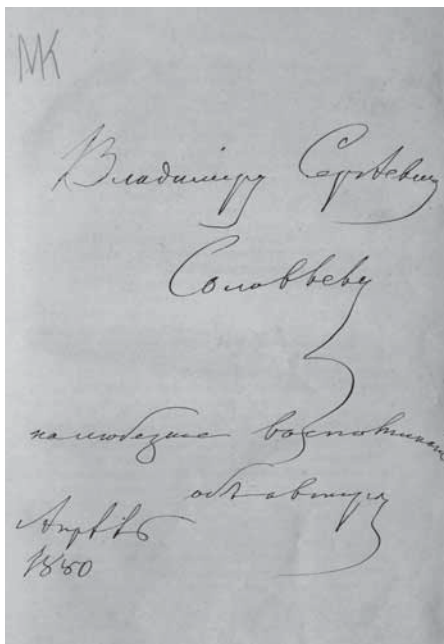 МК
Владиміру Сергѣевичу
Соловьеву
на любезное воспоминаніе
объ авторѣ
Апрѣль
1880